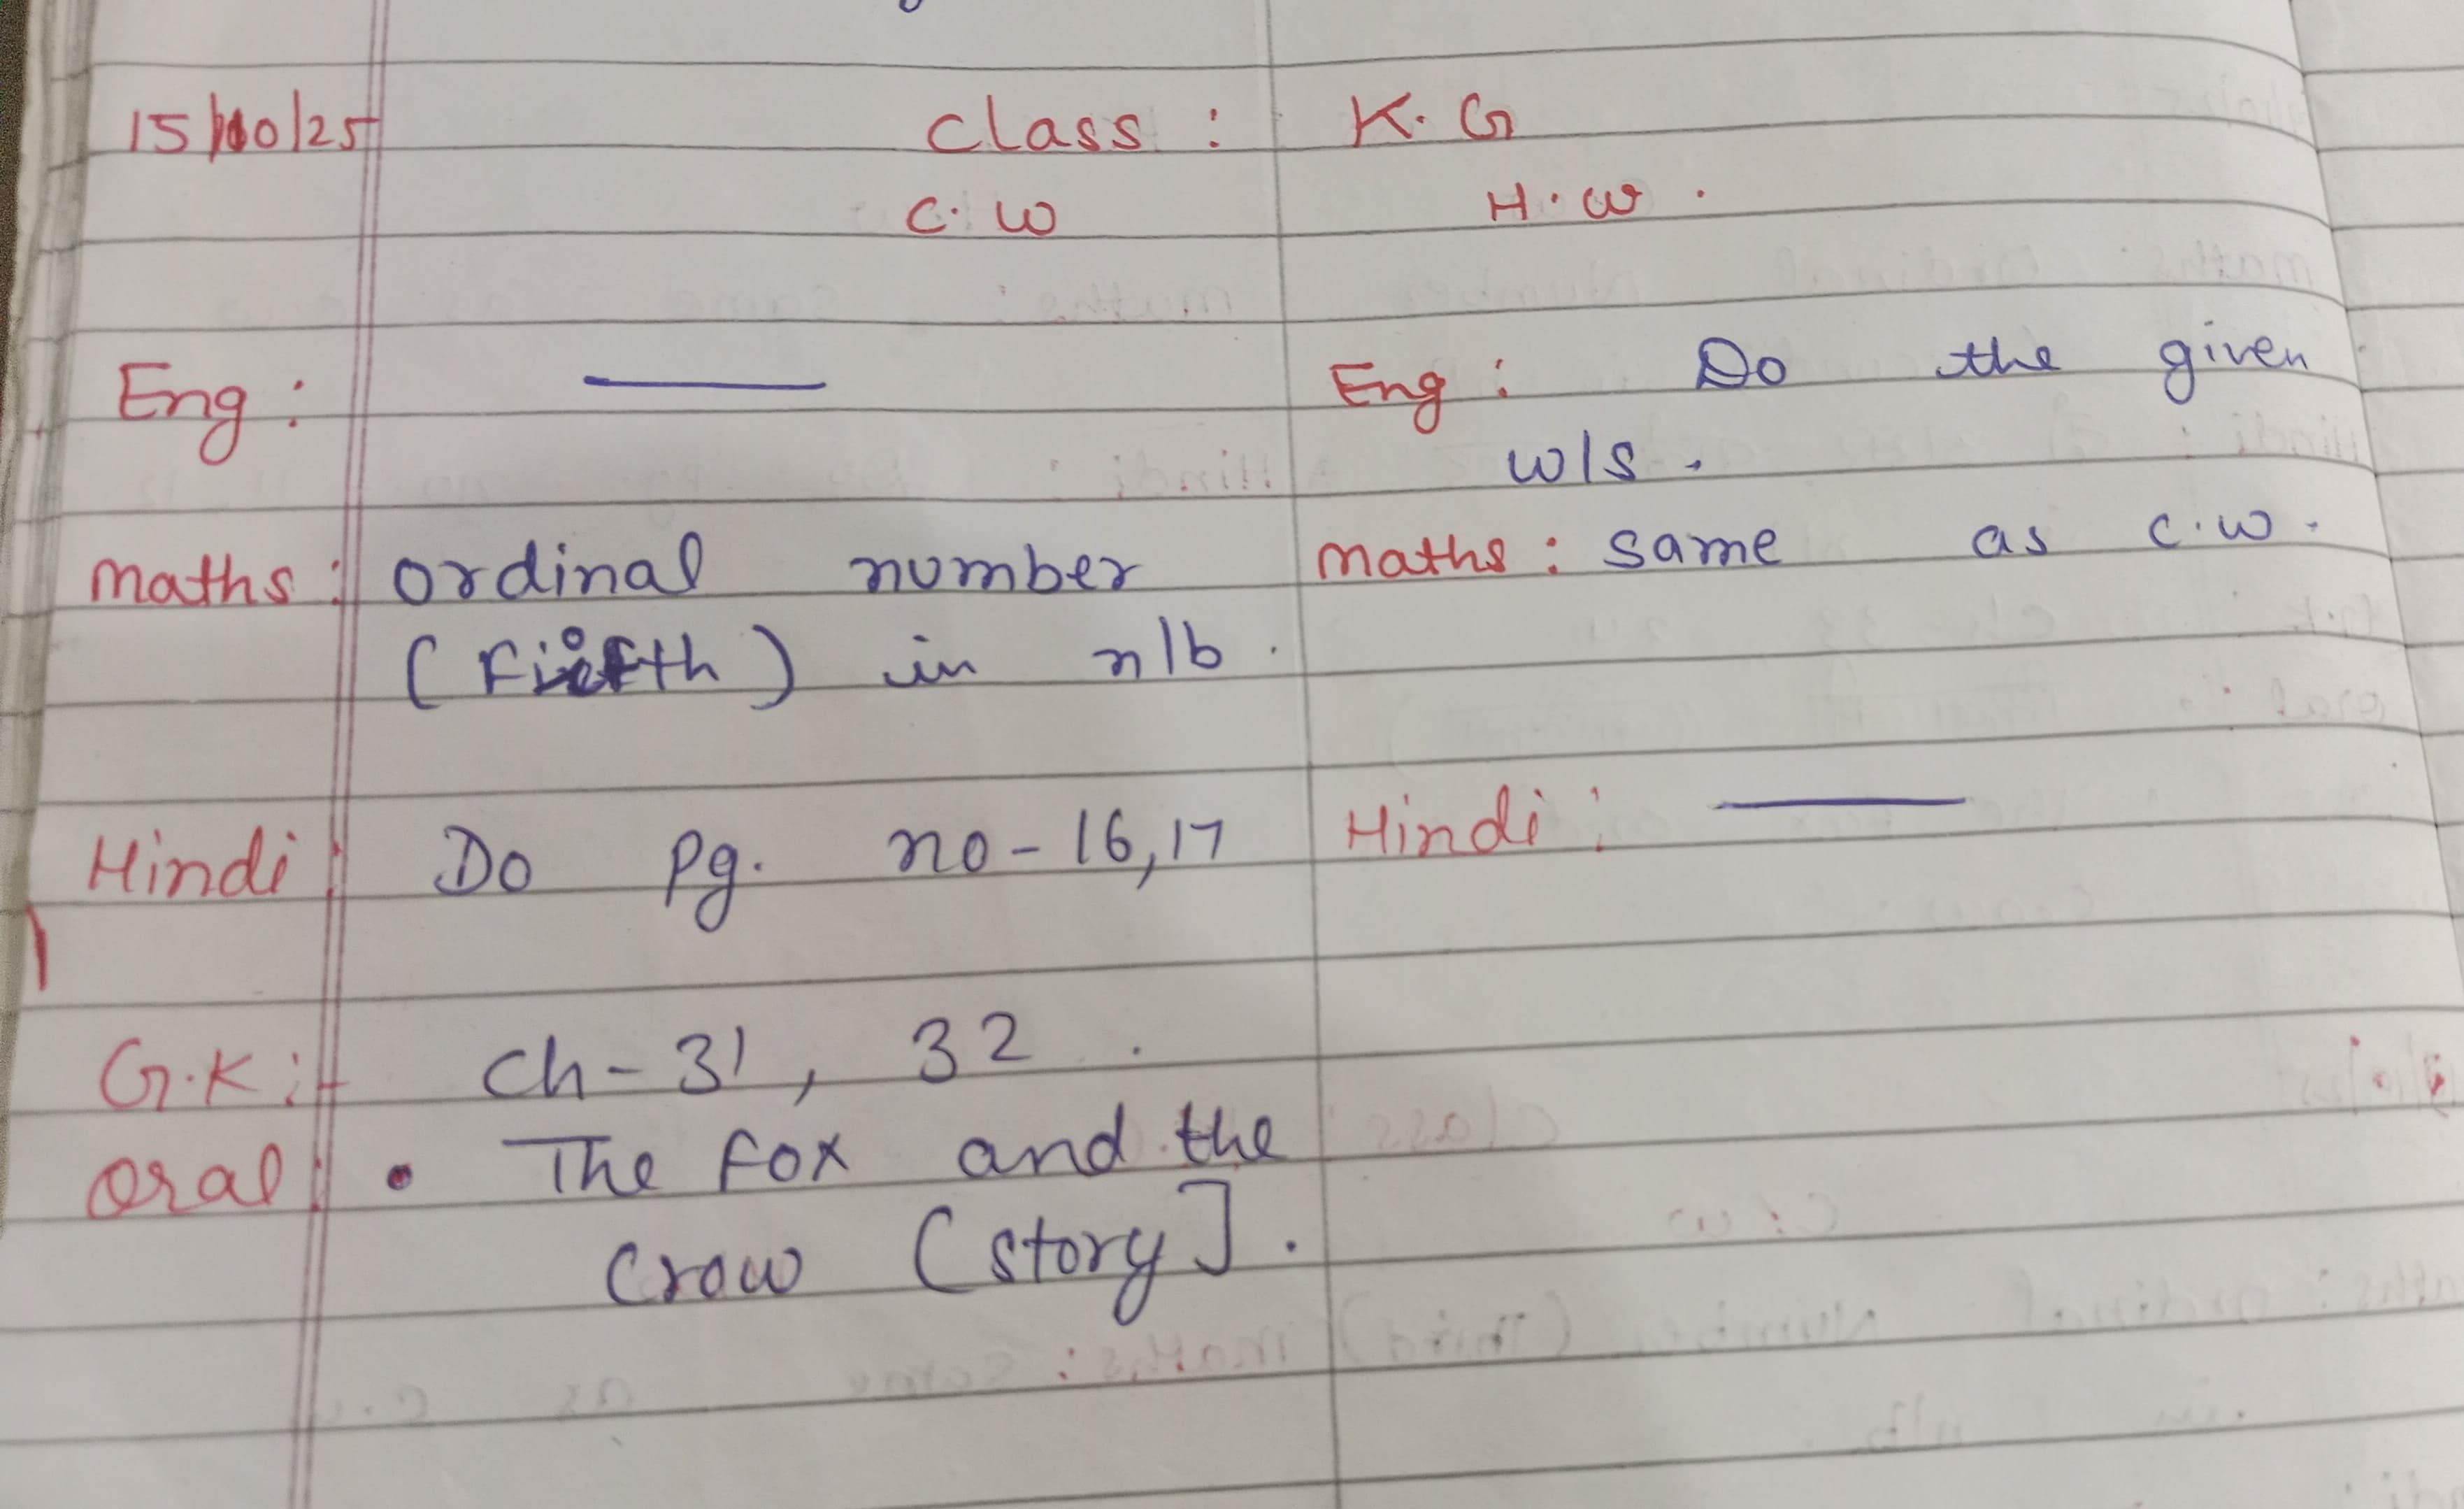 15/10/25 Class : K. G
C. W H. W.
Eng : —— Eng : Do the given
w/s.
Maths : Ordinal number Maths : Same as C.W.
(Fifth) in n/b.
Hindi : Do Pg. no - 16,17 Hindi : ——
G.K :- Ch - 31, 32.
Oral : • The Fox and the
Crow (story].